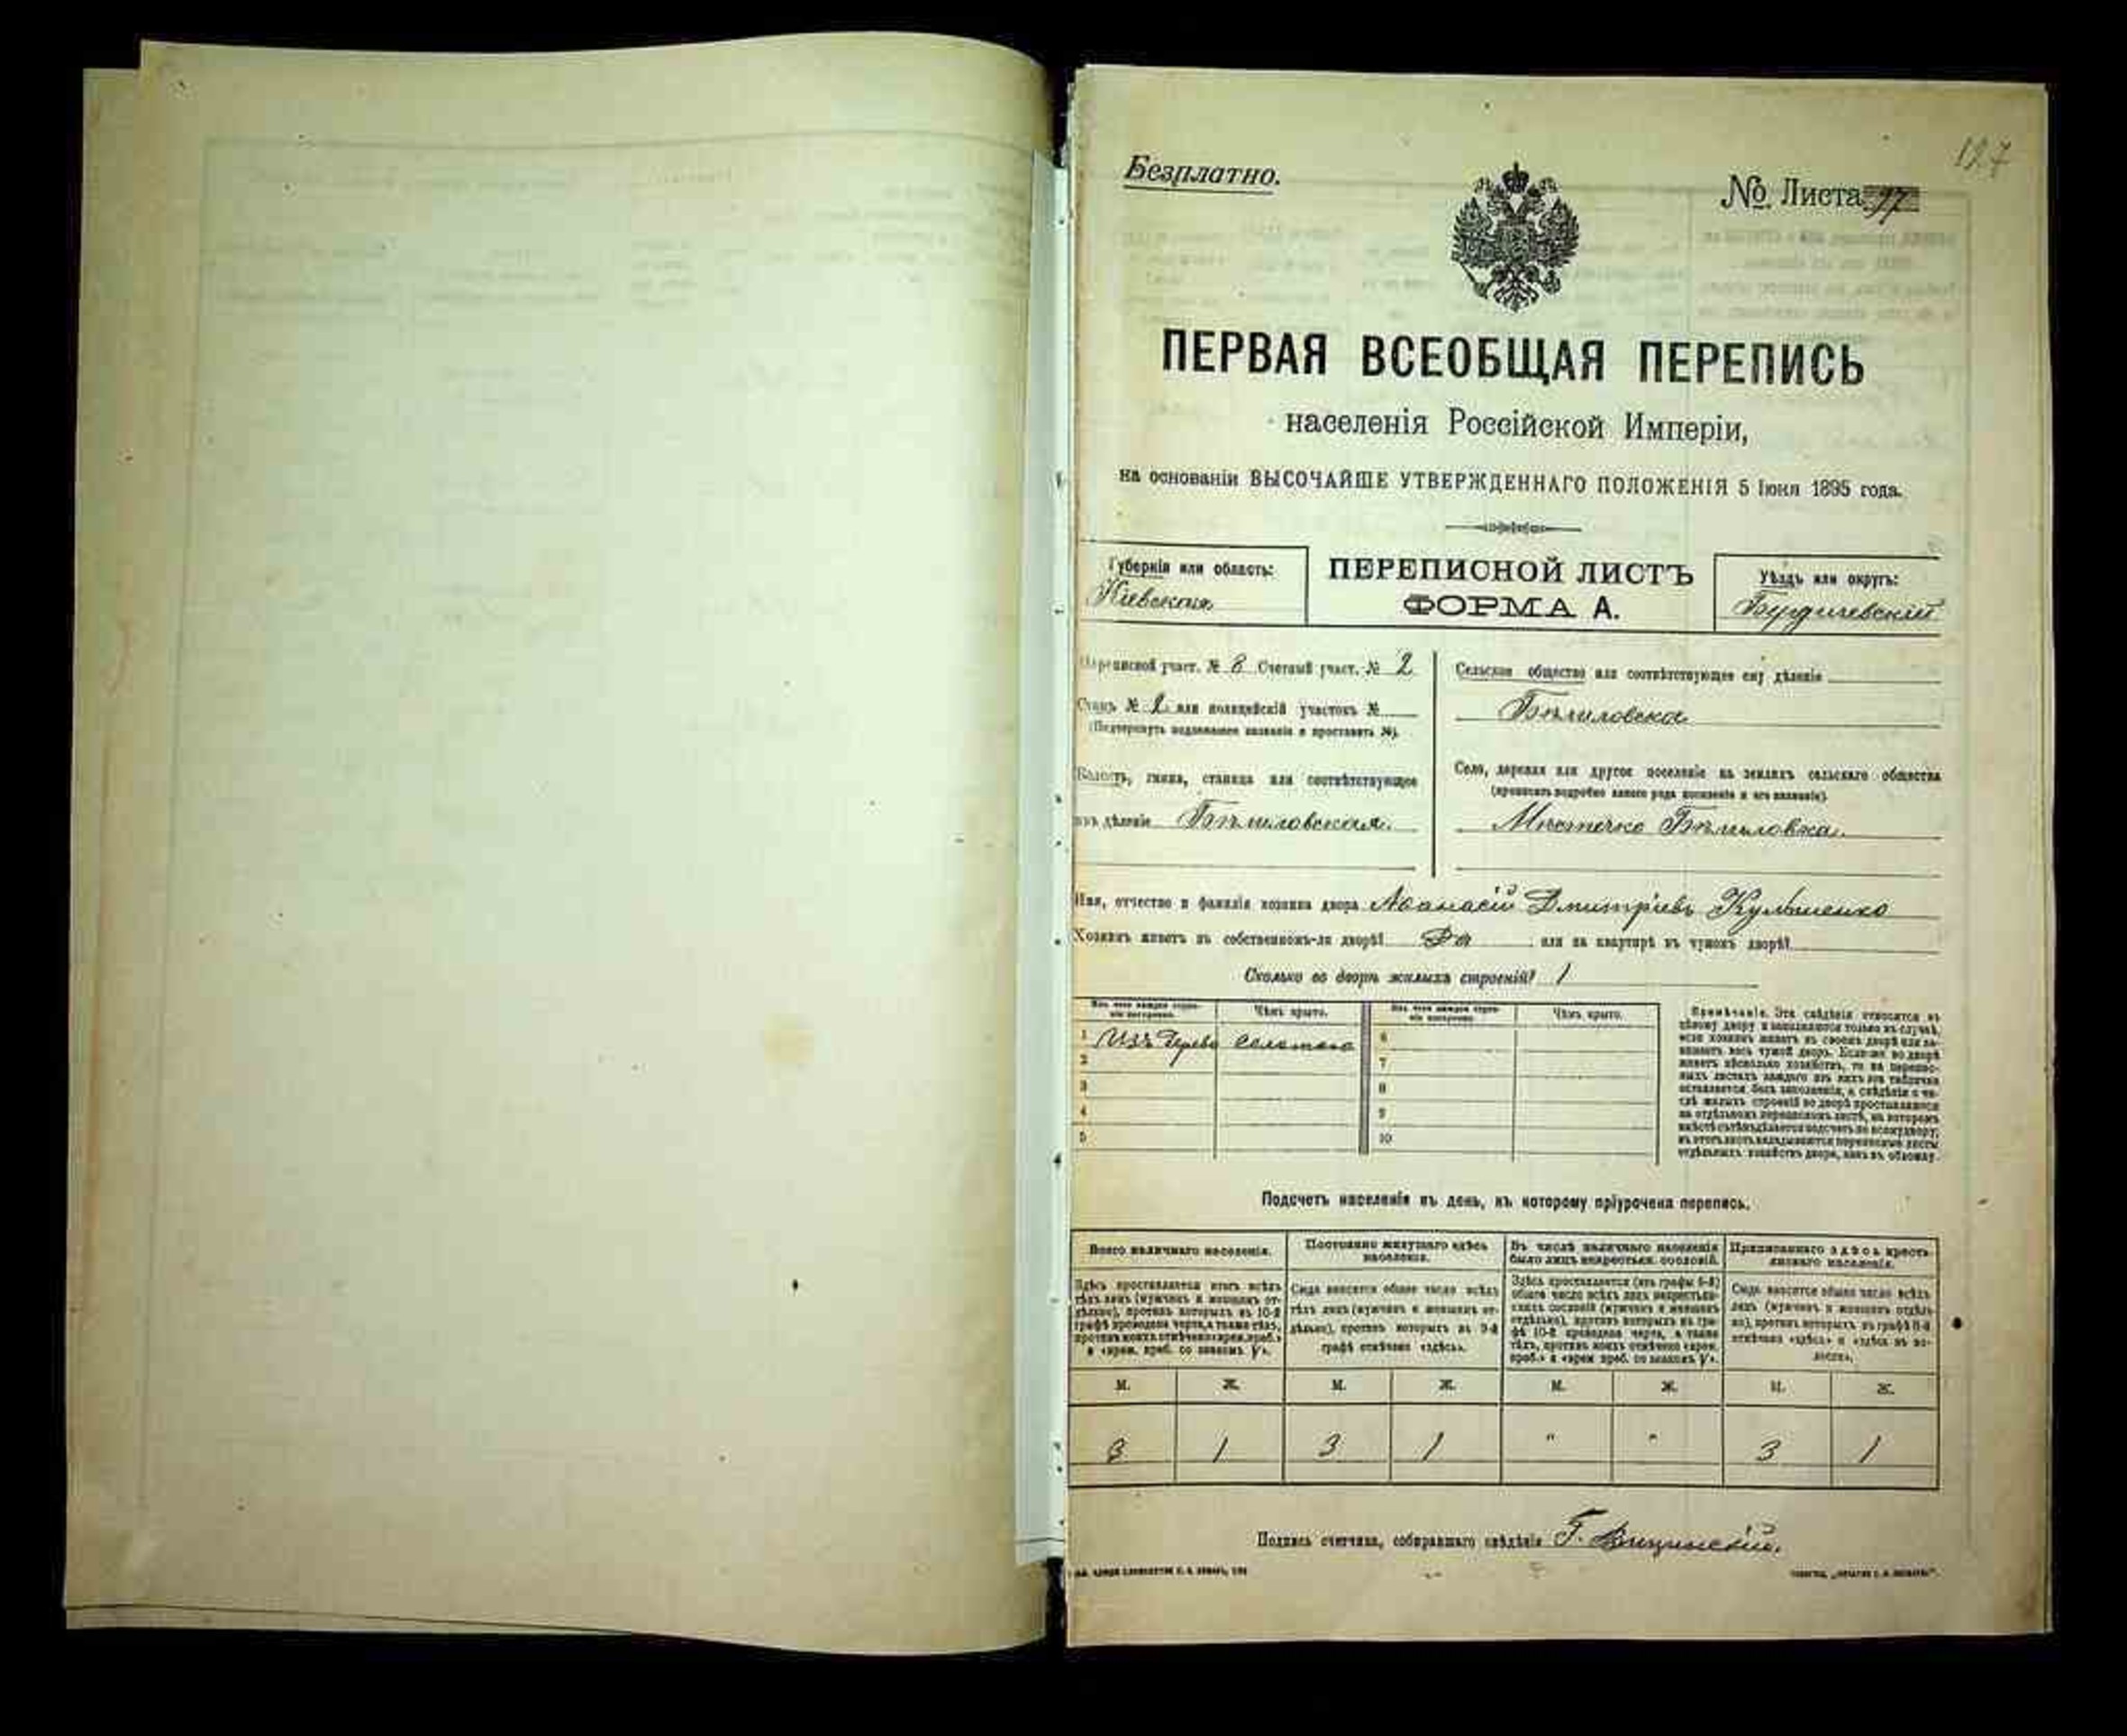 127
Безплатно.
№ Листа 97
ПЕРВАЯ ВСЕОБЩАЯ ПЕРЕПИСЬ
населенія Россійской Имперіи,
на основаніи ВЫСОЧАЙШЕ УТВЕРЖДЕННАГО ПОЛОЖЕНІЯ 5 Іюня 1895 года.
Губернія или область:
Кіевская
ПЕРЕПИСНОЙ ЛИСТЪ
ФОРМА А.
Уѣздъ или округъ:
Бердичевскій
Переписной участ. № 8 Счетный участ. № 2
Станъ № 2 или полицейскій участокъ №
(Подчеркнуть подлежащее названіе и проставить №).
Волость, гмина, станица или соотвѣтствующее
имъ дѣленіе Бѣлиловская.
Сельское общество или соотвѣтствующее ему дѣленіе
Бѣлиловска
Село, деревня или другое поселеніе на земляхъ сельскаго общества
(прописать подробно какого рода поселеніе и его названіе).
Мѣстечко Бѣлиловка.
Имя, отчество и фамилія хозяина двора Аѳанасій Дмитріевъ
Хозяинъ живетъ въ собственномъ-ли дворѣ? Да или на квартирѣ въ чужомъ дворѣ?
Сколько во дворѣ жилыхъ строеній? 1
Изъ чего каждое строе-
ніе построено.
Чѣмъ крыто.
Изъ чего каждое строе-
ніе построено.
Чѣмъ крыто.
1 Изъ дерева соломою
2
3
4
5
6
7
8
9
10
Примѣчаніе. Эти свѣдѣнія относятся къ
цѣлому двору и заполняются только въ случаѣ,
если хозяинъ живетъ въ своемъ дворѣ или за-
нимаетъ весь чужой дворъ. Если же во дворѣ
живетъ нѣсколько хозяйствъ, то на перепис-
ныхъ листахъ каждаго изъ нихъ эта табличка
оставляется безъ заполненія, а свѣдѣнія о чи-
слѣ жилыхъ строеній во дворѣ проставляются
на отдѣльномъ переписномъ листѣ, на которомъ
вмѣстѣ съ тѣмъ дѣлается подсчетъ по всему двору;
въ этотъ листъ вкладываются переписные листы
отдѣльныхъ хозяйствъ двора, какъ въ обложку.
Подсчетъ населенія въ день, къ которому пріурочена перепись.
Всего наличнаго населенія.
Здѣсь проставляется итогъ всѣхъ
тѣхъ лицъ (мужчинъ и женщинъ от-
дѣльно), противъ которыхъ въ 10-й
графѣ проведена черта, а также тѣхъ,
противъ коихъ отмѣчено «врем. преб.»
и «врем. преб. со знакомъ V».
Постоянно живущаго здѣсь
населенія.
Сюда вносится общее число всѣхъ
тѣхъ лицъ (мужчинъ и женщинъ от-
дѣльно), противъ которыхъ въ 9-й
графѣ отмѣчено «здѣсь».
Въ числѣ наличнаго населенія
было лицъ некрестьян. сословій.
Здѣсь проставляется (изъ графы 6-й)
общее число всѣхъ лицъ некрестьян-
скихъ сословій (мужчинъ и женщинъ
отдѣльно), противъ которыхъ въ гра-
фѣ 10-й проведена черта, а также
тѣхъ, противъ коихъ отмѣчено «врем.
преб.» и «врем преб. со знакомъ V».
Приписаннаго здѣсь кресть-
янскаго населенія.
Сюда вносится общее число всѣхъ
лицъ (мужчинъ и женщинъ отдѣль-
но), противъ которыхъ въ графѣ 8-й
отмѣчено «здѣсь» и «здѣсь въ во-
лости».
М. Ж. М. Ж. М. Ж. М. Ж.
3 1 3 1 " " 3 1
Подпись счетчика, собиравшаго свѣдѣнія Г.